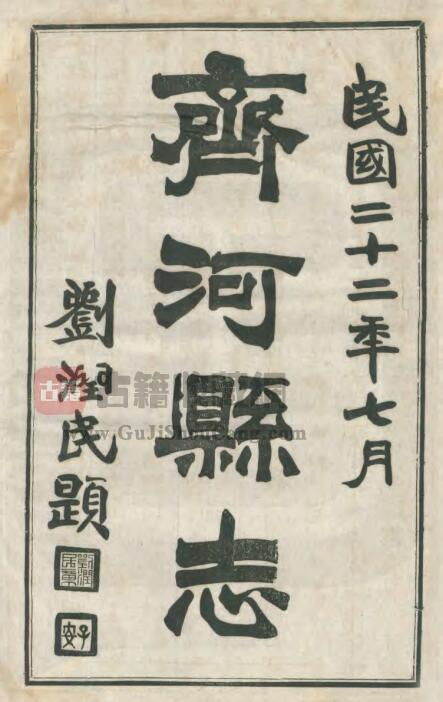 民國二十二年七月
齊河縣志
劉潤民題
劉潤民章
子安
www.GuJiShuCang.com